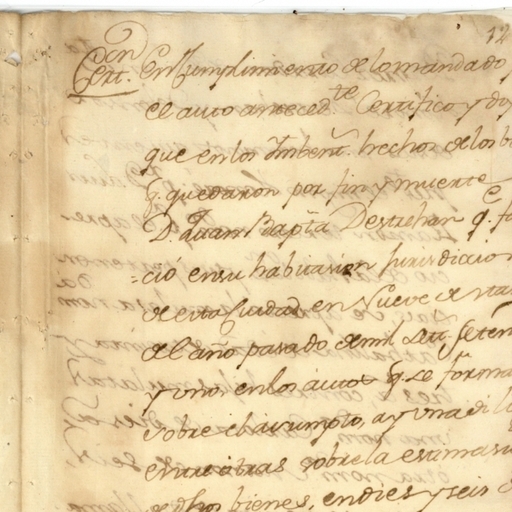 12
Cert.on En Cumplimiento de lo mandado
el auto anteced.te Certifico y doy
que en los Imbent.s hechos de los b
q. quedaron por fin y muerte
D. Juan Bap.ta Destrehan q.e fa
=ció en su habitasion Jurisdiccion
de esta Ciudad en Nueve de
del año pasado de mil Sett. Seten
y uno: en los autos q. se forma
sobre el asumpto, ay una di
entre otras sobre la estimasi
de dhos bienes, en dies y seis